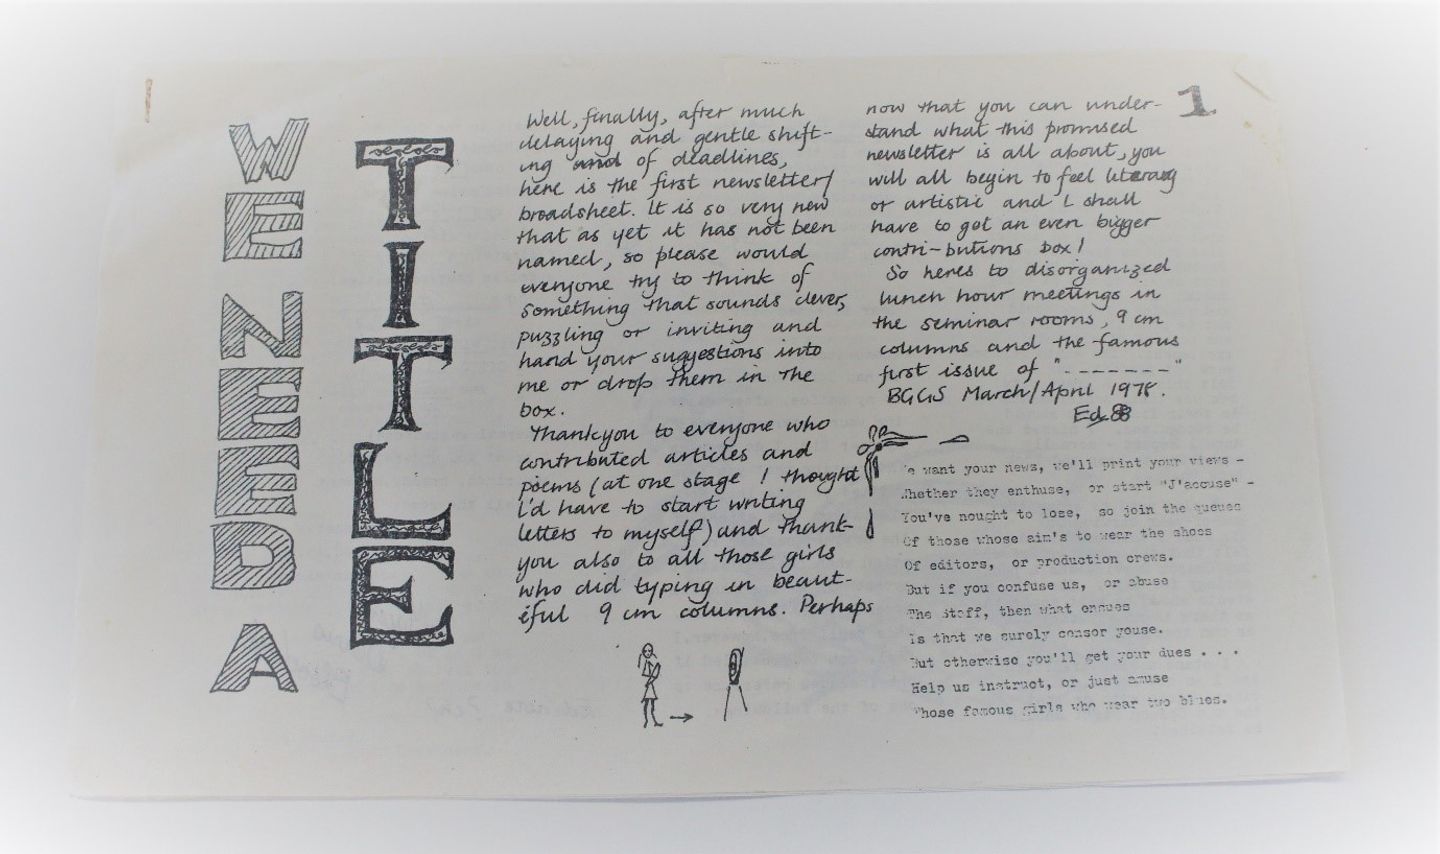 WE NEED A
TITLE
1
Well, finally, after much
delaying and gentle shift-
ing and of deadlines,
here is the first newsletter/
broadsheet. It is so very new
that as yet it has not been
named, so please would
everyone try to think of
something that sounds clever,
puzzling or inviting and
hand your suggestions into
me or drop them in the
box.
Thankyou to everyone who
contributed articles and
poems (at one stage I thought
I'd have to start writing
letters to myself) and thank-
you also to all those girls
who did typing in beaut-
iful 9 cm columns. Perhaps
now that you can under-
stand what this promised
newsletter is all about, you
will all begin to feel literary
or artistic and I shall
have to get an even bigger
contri-butions box!
So heres to disorganized
lunch hour meetings in
the seminar rooms, 9 cm
columns and the famous
first issue of "-------"
BGGS March/April 1978.
Ed.
We want your news, we'll print your views -
Whether they enthuse, or start "J'accuse" -
You've nought to lose, so join the queues
Of those whose aim's to wear the shoes
Of editors, or production crews.
But if you confuse us, or abuse
The staff, then what ensues
Is that we surely censor youse.
But otherwise you'll get your dues . . .
Help us instruct, or just amuse
Those famous girls who wear two blues.